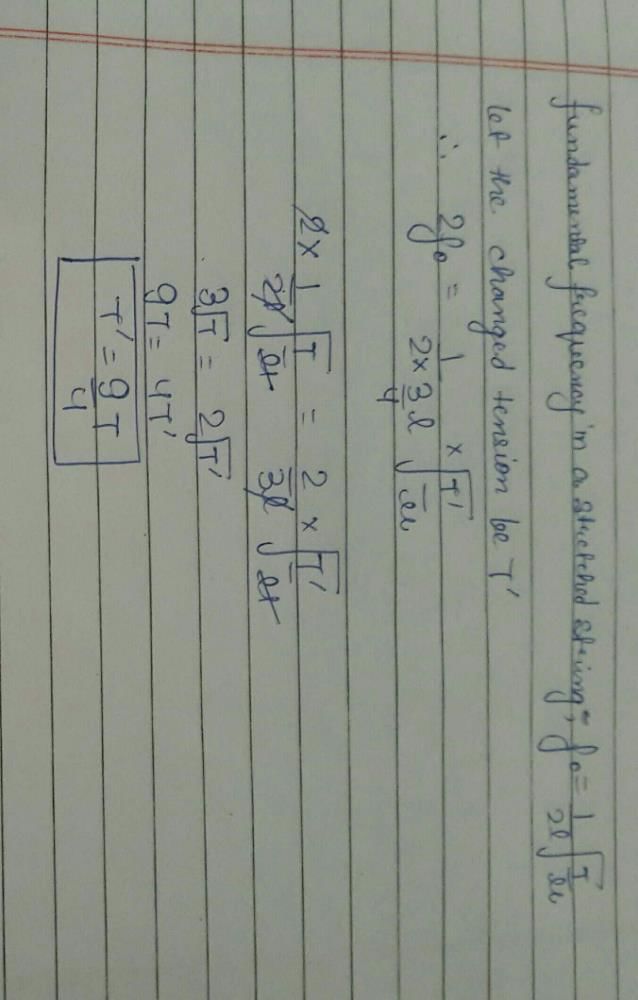 fundamental frequency in a stretched string =, f₀ = 1/2l √T/μ
let the changed tension be T'
∴ 2f₀ = 1/(2×3/4 l) × √T'/μ
2 × 1/2l √T/μ = 2/3l × √T'/μ
3√T = 2√T'
9T = 4T'
T' = 9/4 T